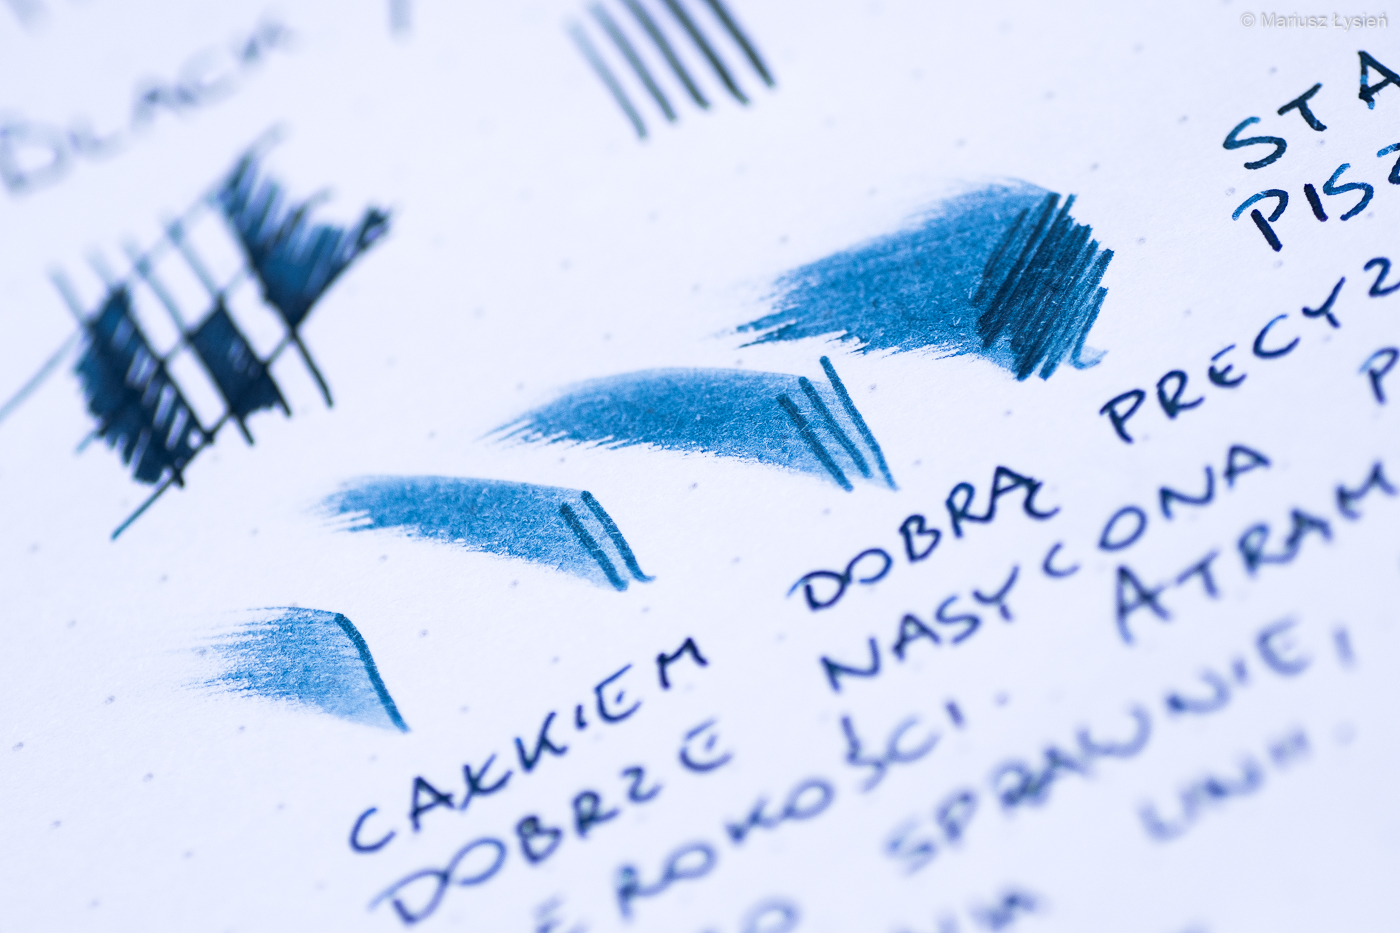 © Mariusz Łysień
BLACK
STA
PISZ
CAŁKIEM DOBRĄ PRECYZ
DOBRZE NASYCONA P
EROKOŚCI. ATRAM
SPRAWNIE,
LINII.